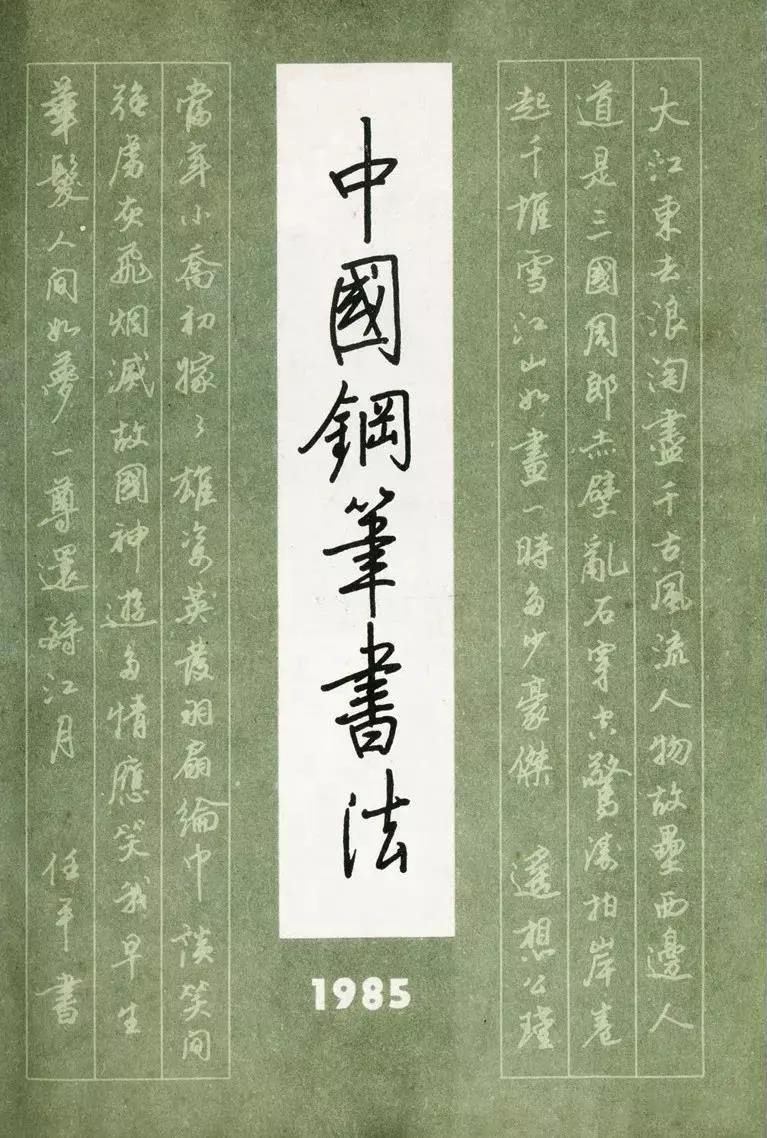 大江東去浪淘盡千古風流人物故壘西邊人
道是三國周郎赤壁亂石穿空驚濤拍岸卷
起千堆雪江山如畫一時多少豪傑 遙想公瑾
中國鋼筆書法
1985
當年小喬初嫁了雄姿英發羽扇綸巾談笑間
強虜灰飛烟滅故國神遊多情應笑我早生
華髮人間如夢一尊還酹江月 任平書